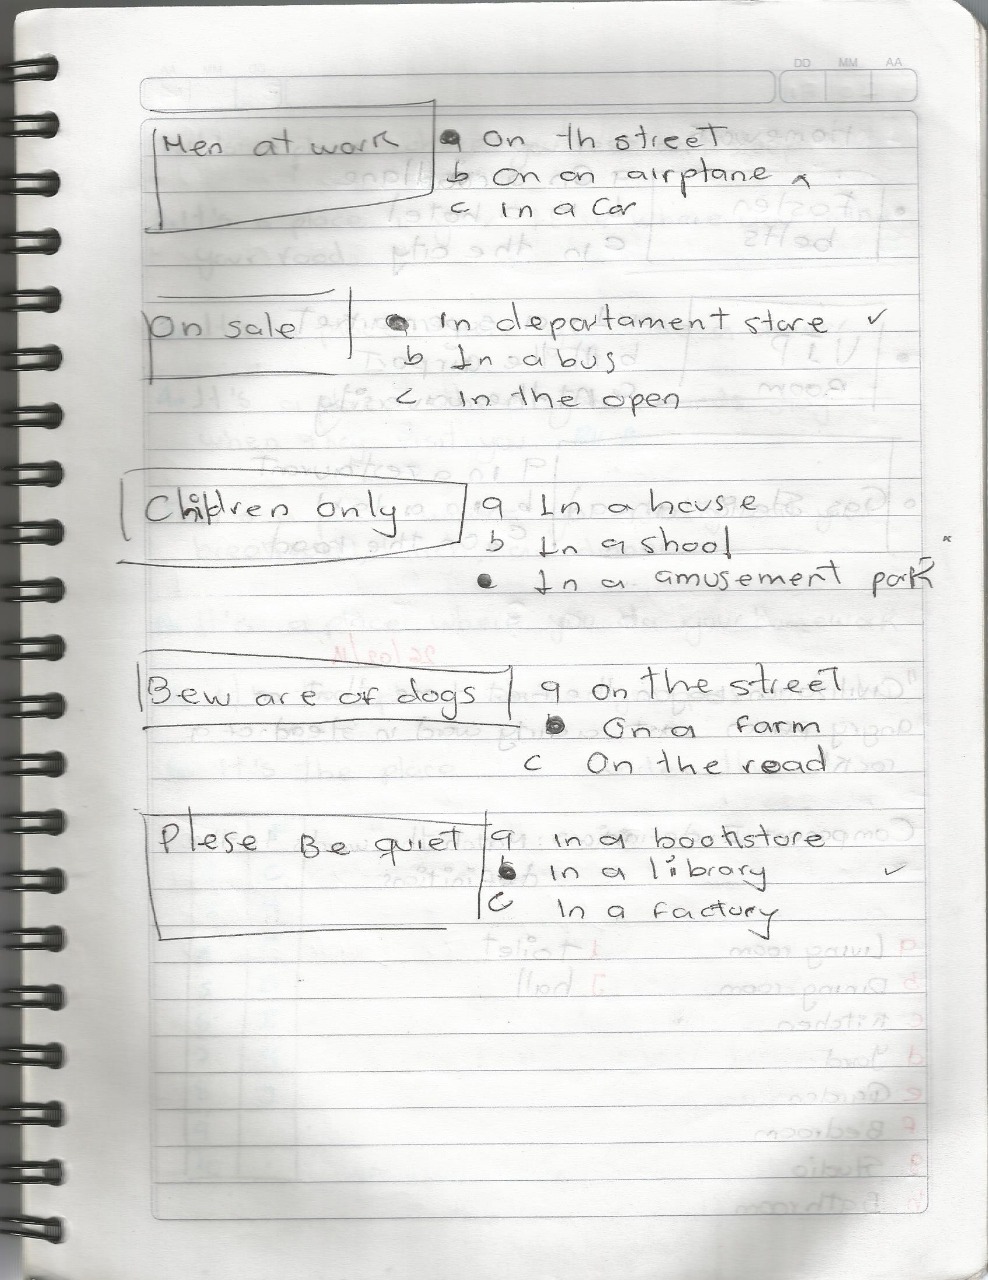 DD MM AA
Men at work a On th street
b On an airplane
c in a car
On sale a in departament store ✓
b In a bus
c In the open
Children only a In a house
b In a shool
c In a amusement park
Bew are of dogs a on the street
b On a farm
c On the road
Plese Be quiet a in a bookstore
b in a library ✓
c In a factory